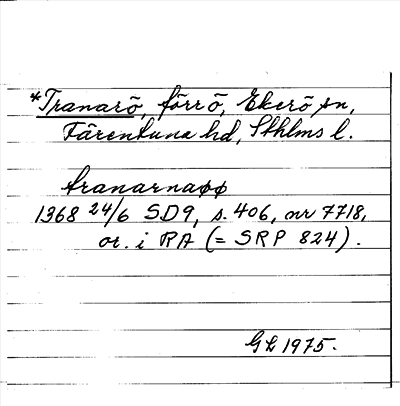 *Tranarö, förr ö, Ekerö sn,
Färentuna hd, Sthlms l.
tranarnaøø
1368 24/6 SD9, s. 406, nr 7718,
or. i RA (= SRP 824).
GL 1975.